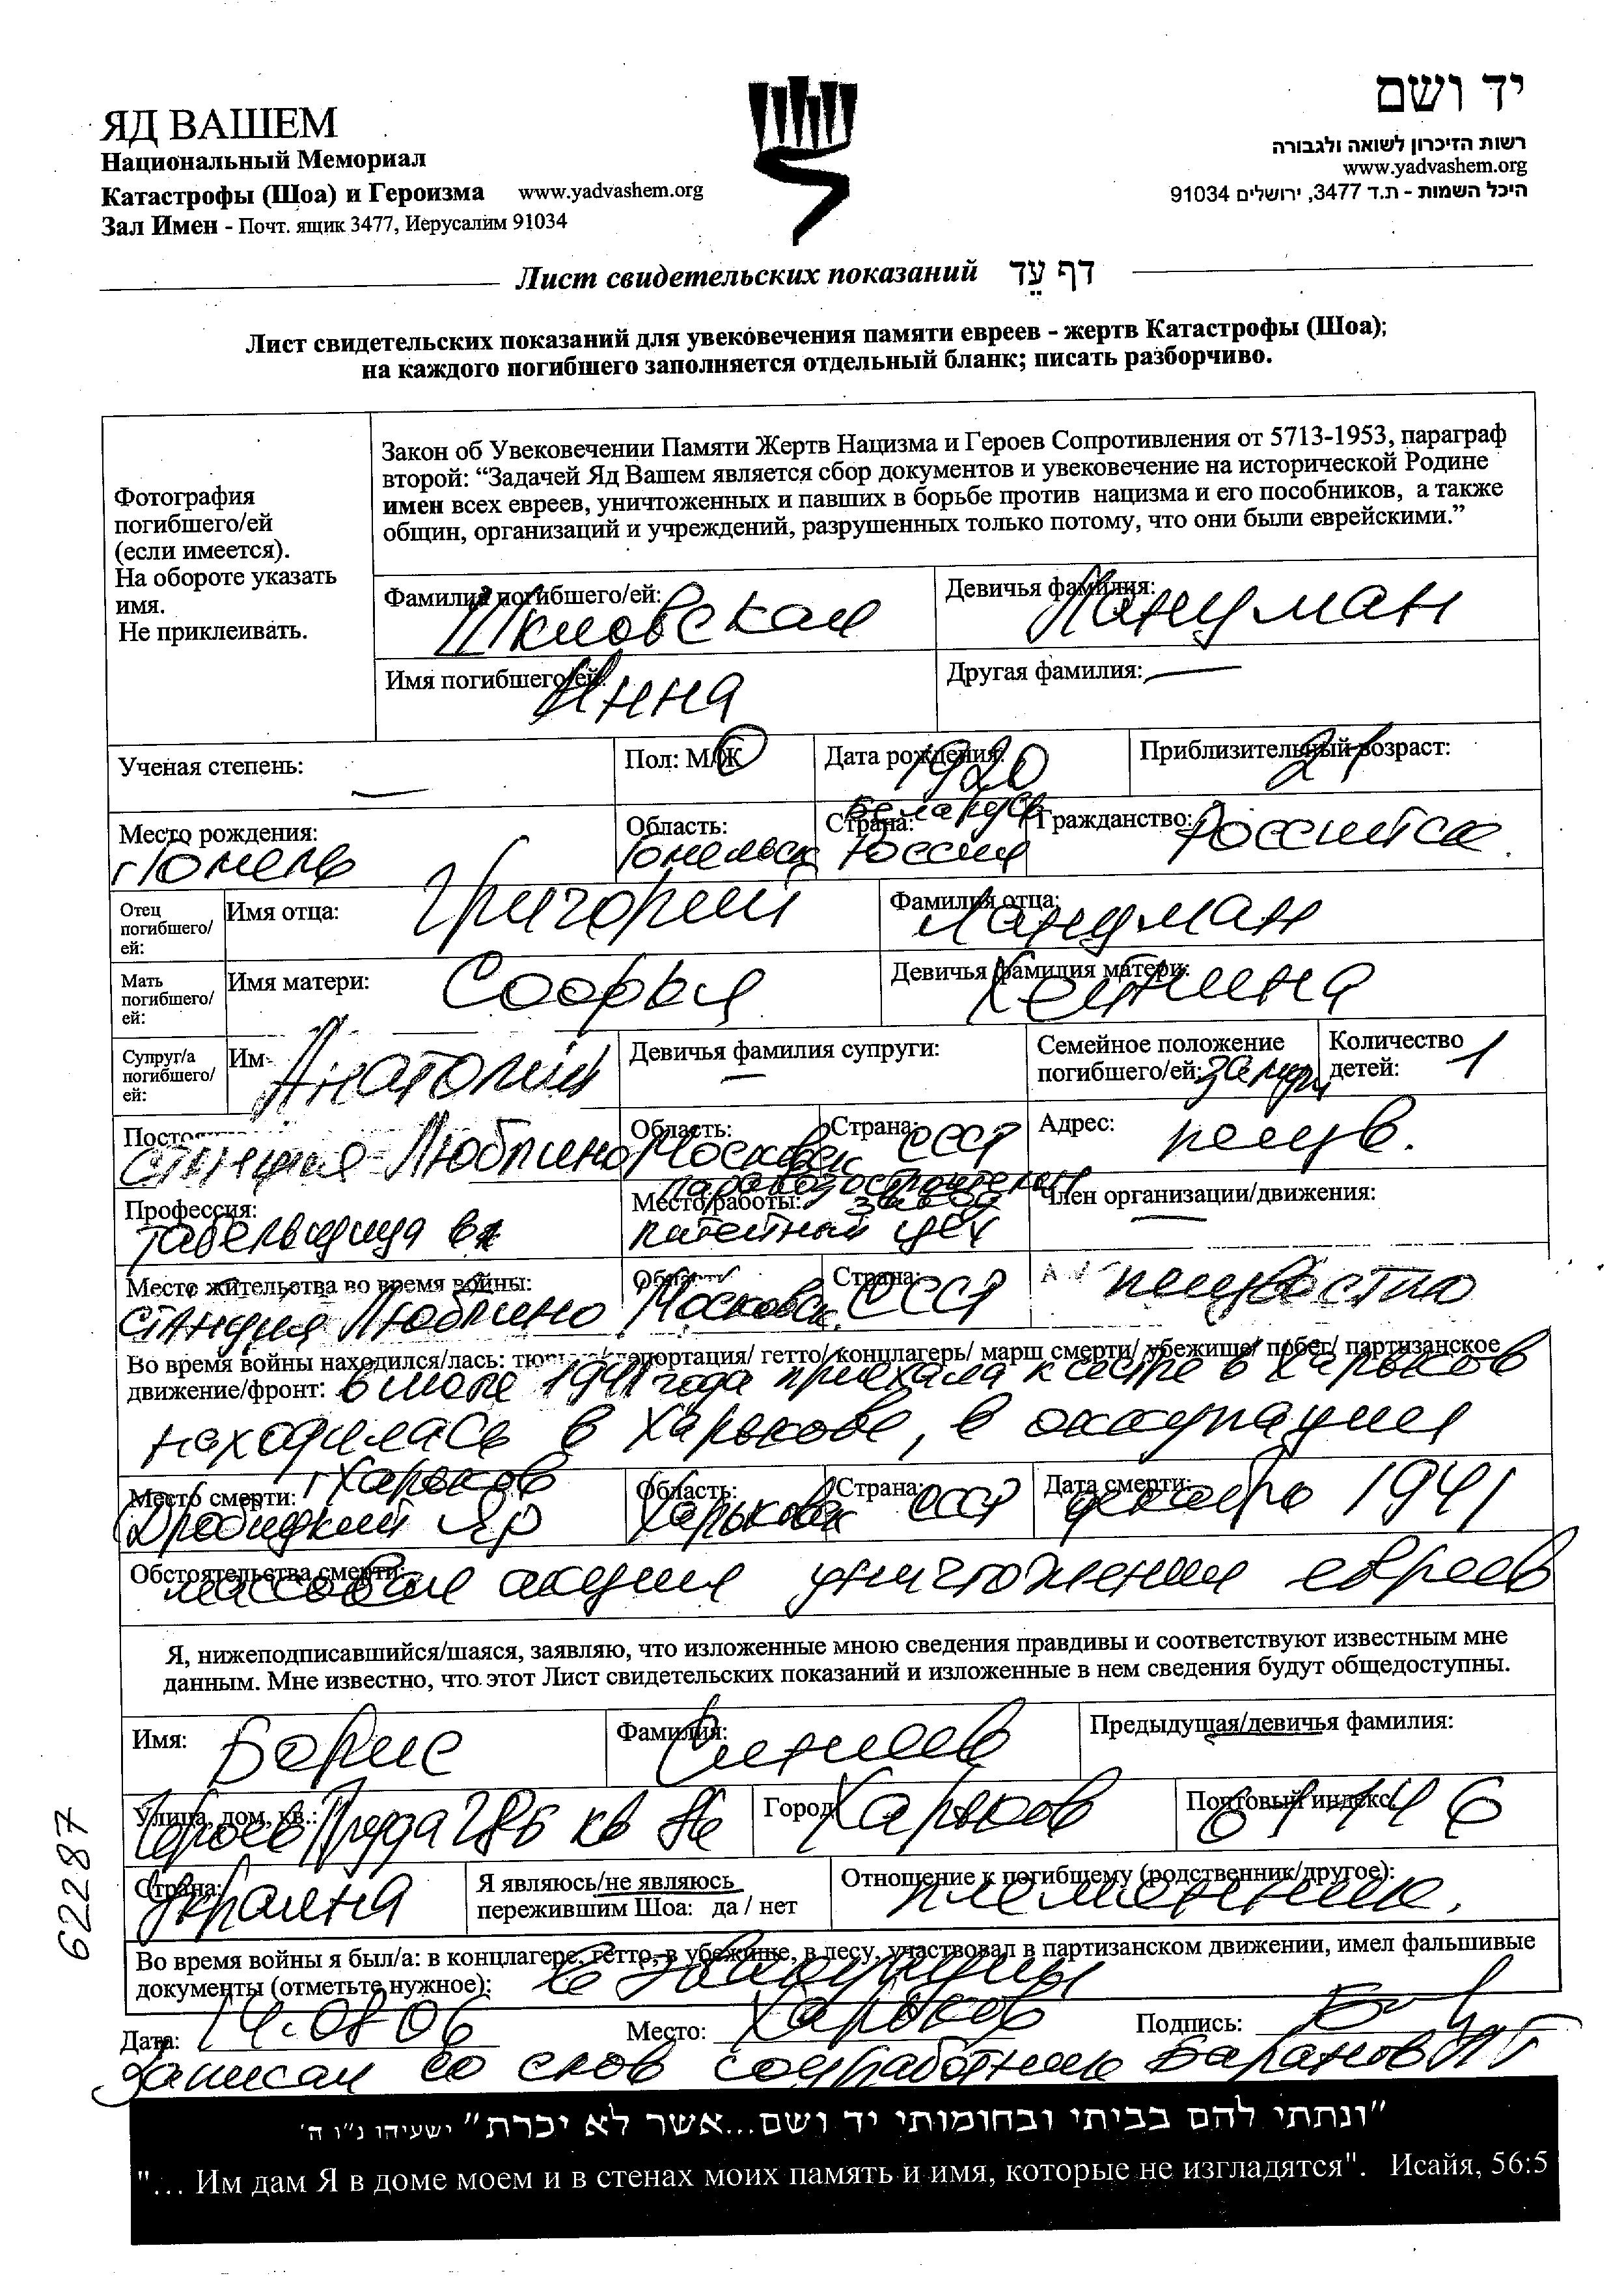 ЯД ВАШЕМ
Национальный Мемориал
Катастрофы (Шоа) и Героизма www.yadvashem.org
Зал Имен - Почт. ящик 3477, Иерусалим 91034
יד ושם
רשות הזיכרון לשואה ולגבורה
www.yadvashem.org
היכל השמות - ת.ד 3477, ירושלים 91034
Лист свидетельских показаний דף עֵד
Лист свидетельских показаний для увековечения памяти евреев - жертв Катастрофы (Шоа);
на каждого погибшего заполняется отдельный бланк; писать разборчиво.
Фотография
погибшего/ей
(если имеется).
На обороте указать
имя.
Не приклеивать.
Закон об Увековечении Памяти Жертв Нацизма и Героев Сопротивления от 5713-1953, параграф
второй: “Задачей Яд Вашем является сбор документов и увековечение на исторической Родине
имен всех евреев, уничтоженных и павших в борьбе против нацизма и его пособников, а также
общин, организаций и учреждений, разрушенных только потому, что они были еврейскими.”
Фамилия погибшего/ей: Шкловская
Девичья фамилия: Ланцман
Имя погибшего/ей: Инна
Другая фамилия: —
Ученая степень: —
Пол: М/Ж
Дата рождения: 1920
Приблизительный возраст: 21
Место рождения: г Гомель
Область: Гомельск
Страна: Беларусь Россия
Гражданство: Россиитск.
Отец погибшего/ей:
Имя отца: Григорий
Фамилия отца: Ланцман
Мать погибшего/ей:
Имя матери: Софья
Девичья фамилия матери: Хейфина
Супруг/а погибшего/ей:
Им Анатолий
Девичья фамилия супруги: —
Семейное положение погибшего/ей: замуж
Количество детей: 1
Постоян станция Люблино
Область: Московск
Страна: СССР
Адрес: неизв.
Профессия: табельщица в
Место работы: паровозостроительн завод литейный цех
Член организации/движения: —
Место жительства во время войны: станция Люблино
Область Московск.
Страна: СССР
неизвестно
Во время войны находился/лась: тюрьма/депортация/ гетто/ концлагерь/ марш смерти/ убежище/ побег/ партизанское
движение/фронт: в июле 1941 года приехала к сестре в Харьков
находилась в Харькове, в оккупации
Место смерти: г Харьков
(Дробицкий Яр
Область: Харьковск
Страна: СССР
Дата смерти: декабрь 1941
Обстоятельства смерти: массовая акция уничтожения евреев
Я, нижеподписавшийся/шаяся, заявляю, что изложенные мною сведения правдивы и соответствуют известным мне
данным. Мне известно, что этот Лист свидетельских показаний и изложенные в нем сведения будут общедоступны.
Имя: Борис
Фамилия:
Предыдущая/девичья фамилия:
Улица, дом, кв.: Героев Труда 28б кв 86
Город Харьков
Почтовый индекс: 61146
Страна: Украина
Я являюсь/не являюсь
пережившим Шоа: да / нет
Отношение к погибшему (родственник/другое): племянник.
Во время войны я был/а: в концлагере, гетто, в убежище, в лесу, участвовал в партизанском движении, имел фальшивые
документы (отметьте нужное): в эвакуации
Дата: 14.08.06 Место: Харьков Подпись:
Записал со слов соцработник Баранов
62287
"ונתתי להם בביתי ובחומותי יד ושם...אשר לא יכרת" ישעיהו נ"ו ה'
"... Им дам Я в доме моем и в стенах моих память и имя, которые не изгладятся". Исайя, 56:5